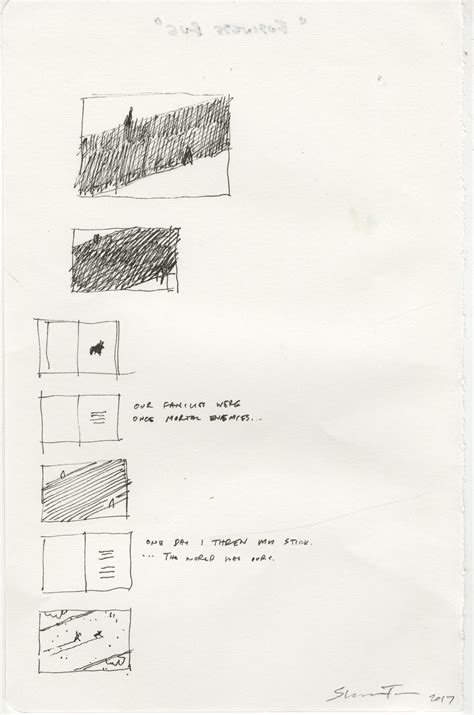 OUR FAMILIES WERE
ONCE MORTAL ENEMIES...
ONE DAY I THREW MY STICK.
... THE WORLD WAS OURS.
2017